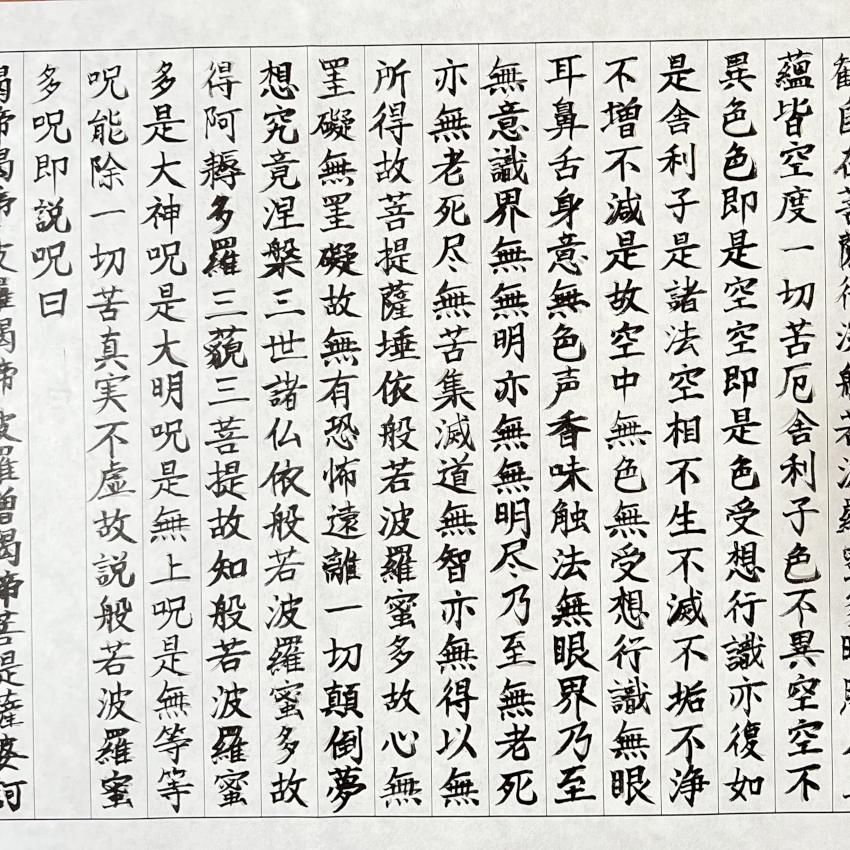 観自在菩薩行深般若波羅蜜多時照見五
蘊皆空度一切苦厄舎利子色不異空空不
異色色即是空空即是色受想行識亦復如
是舎利子是諸法空相不生不滅不垢不浄
不増不減是故空中無色無受想行識無眼
耳鼻舌身意無色声香味触法無眼界乃至
無意識界無無明亦無無明尽乃至無老死
亦無老死尽無苦集滅道無智亦無得以無
所得故菩提薩埵依般若波羅蜜多故心無
罣礙無罣礙故無有恐怖遠離一切顛倒夢
想究竟涅槃三世諸仏依般若波羅蜜多故
得阿耨多羅三藐三菩提故知般若波羅蜜
多是大神呪是大明呪是無上呪是無等等
呪能除一切苦真実不虚故説般若波羅蜜
多呪即説呪曰
羯帝羯帝波羅羯帝波羅僧羯帝菩提薩婆訶